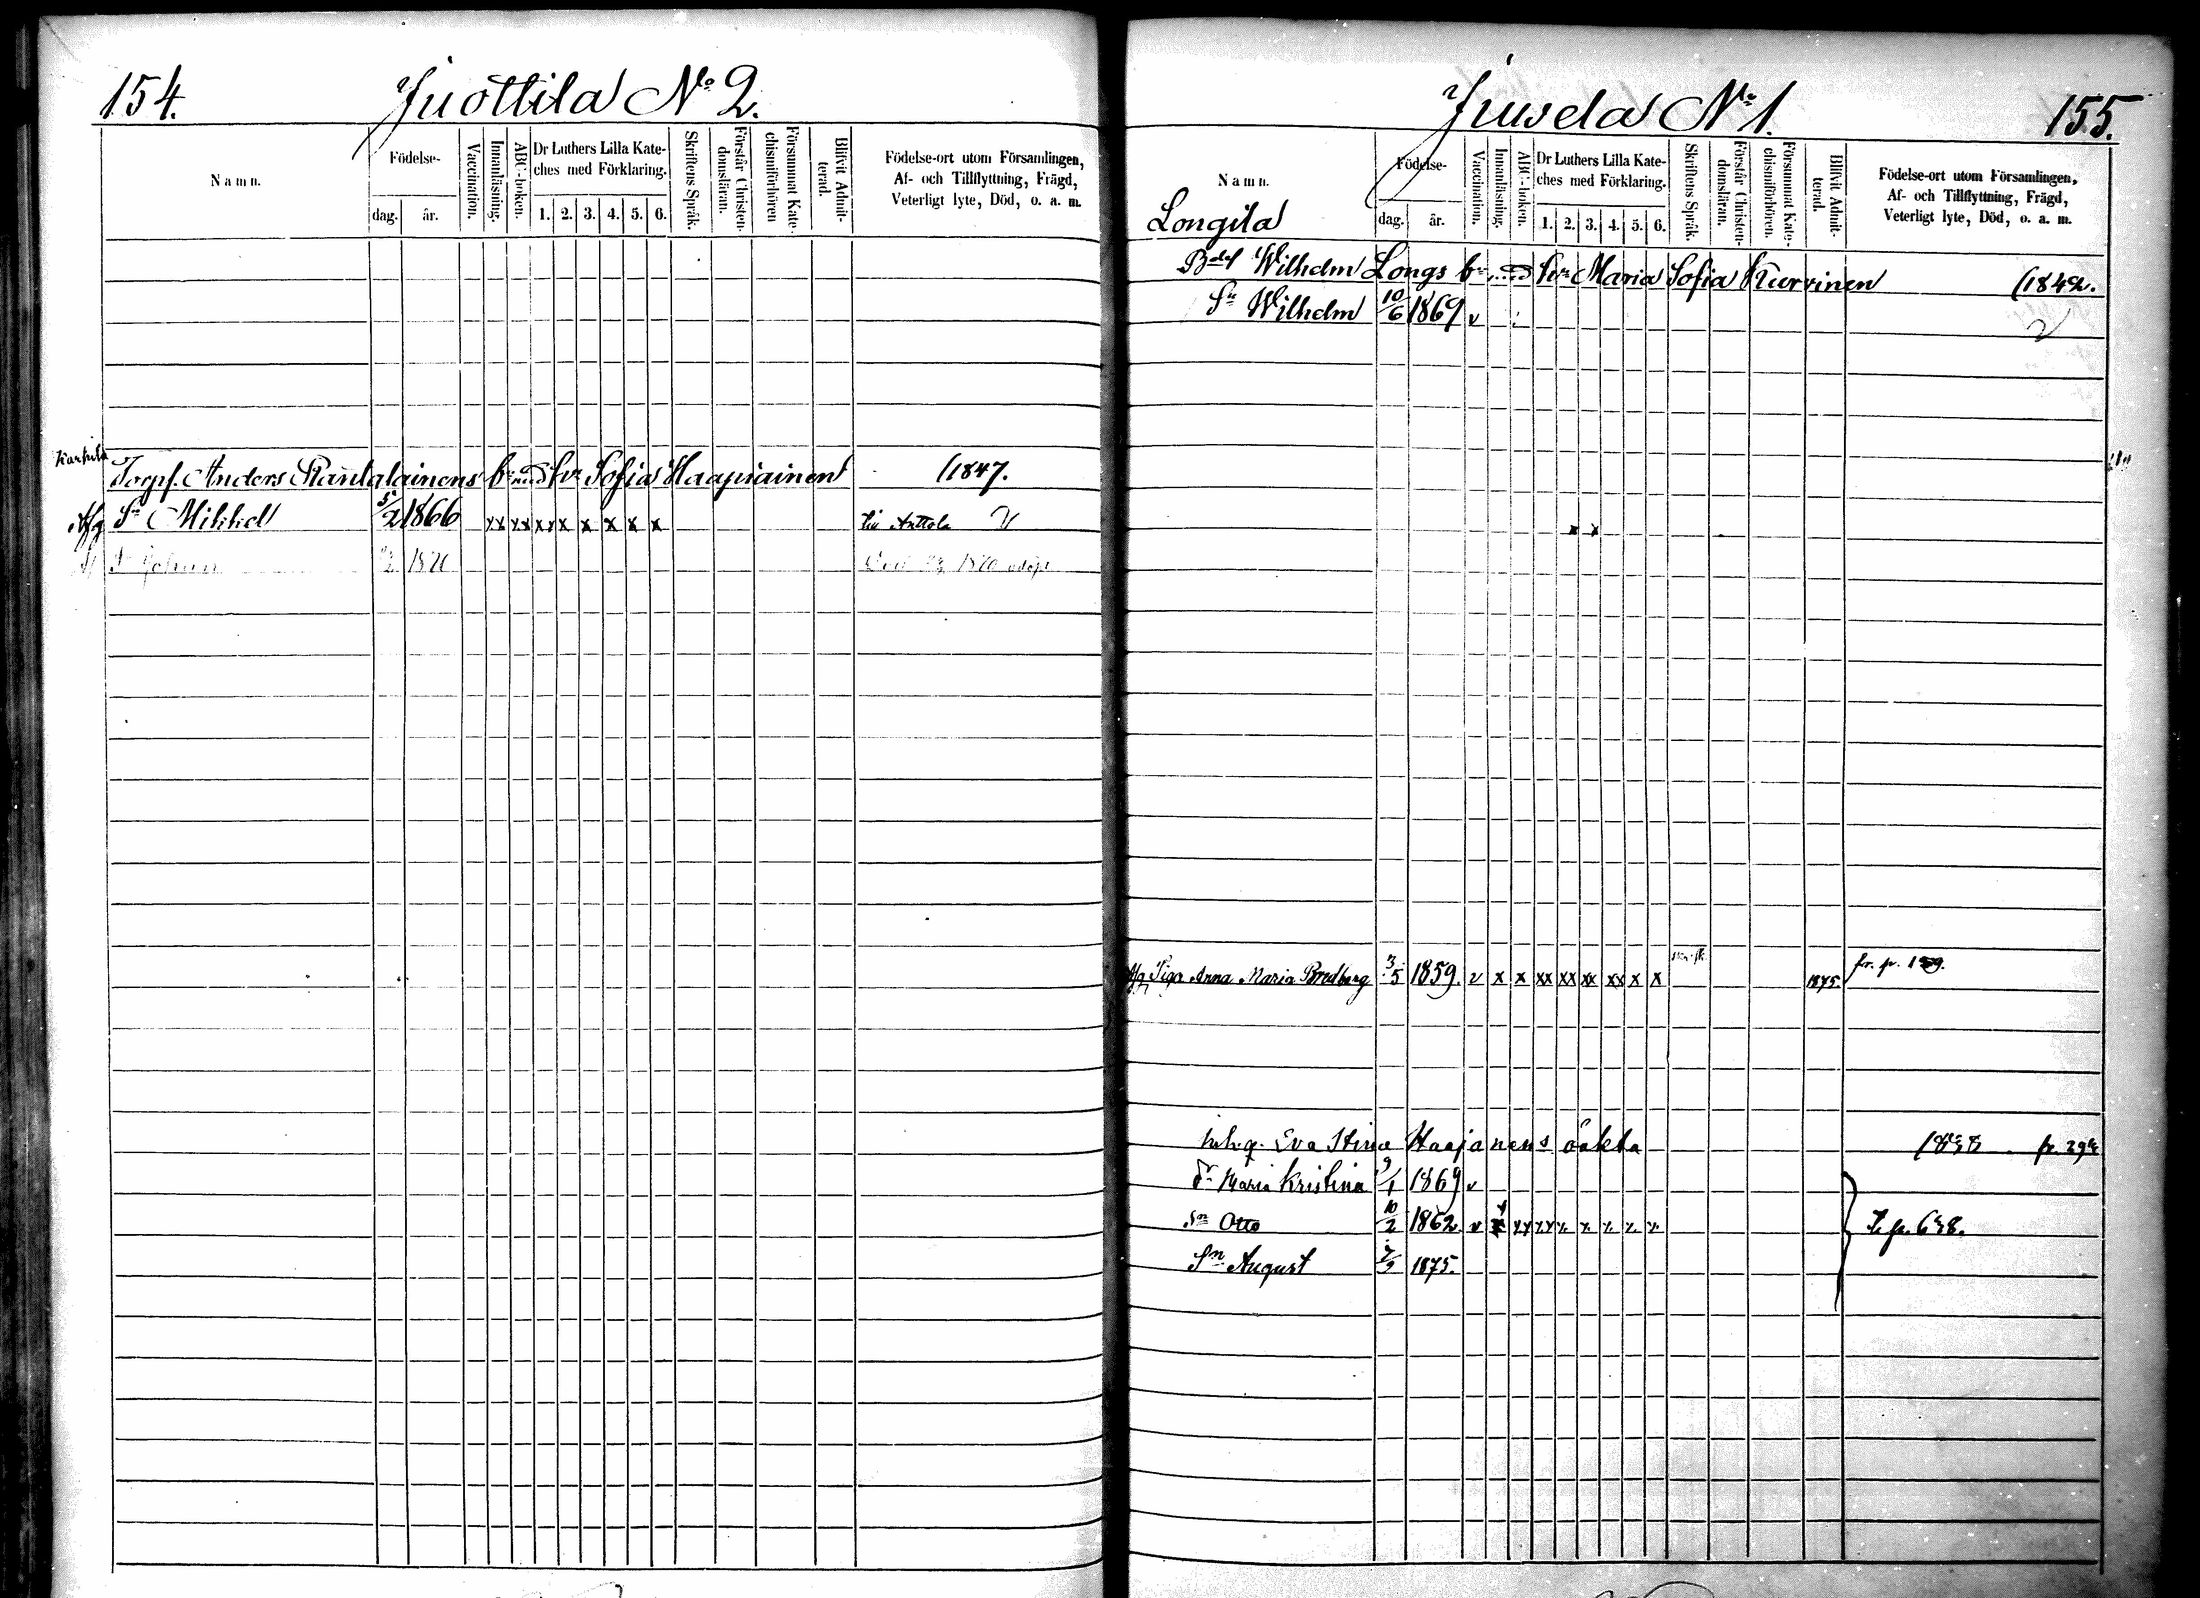 154.
Juottila No 2.
Namn.
Födelse-
dag. år.
Vaccination.
Innanläsning.
ABC-boken.
Dr Luthers Lilla Kate-
ches med Förklaring.
1. 2. 3. 4. 5. 6.
Skriftens Språk.
Förstår Christen-
domsläran.
Försummat Kate-
chismiförhören
Blifvit Admit-
terad.
Födelse-ort utom Församlingen,
Af- och Tillflyttning, Frägd,
Veterligt lyte, Död, o. a. m.
Karhila
Torpf. Anders Rantalainens b. med hu Sofia Haapiainen (1847.
Sn Mikkel 5/2 1866 xx xx xx x x x x x Anttola
Sn Johan 1870
155.
Juusela No 1.
Namn.
Longila
Födelse-
dag. år.
Vaccination.
Innanläsning.
ABC-boken.
Dr Luthers Lilla Kate-
ches med Förklaring.
1. 2. 3. 4. 5. 6.
Skriftens Språk.
Förstår Christen-
domsläran.
Försummat Kate-
chismiförhören.
Blifvit Admit-
terad.
Födelse-ort utom Församlingen,
Af- och Tillflyttning, Frägd,
Veterligt lyte, Död, o. a. m.
Wilhelm Longs b. med hu Maria Sofia Kurvinen (1842.
Sn Wilhelm 10/6 1869 v
x x
Piga Anna Maria Bredberg 3/5 1859. v x x xx xx xx xx x x 1875. fr. p.
inh.q. Eva Stina Haajanens oäkta
dr Maria Kristina 9/1 1869 v
Sn Otto 10/2 1862 v x xx xx x x x x x T. p. 638.
Sn August 1875.